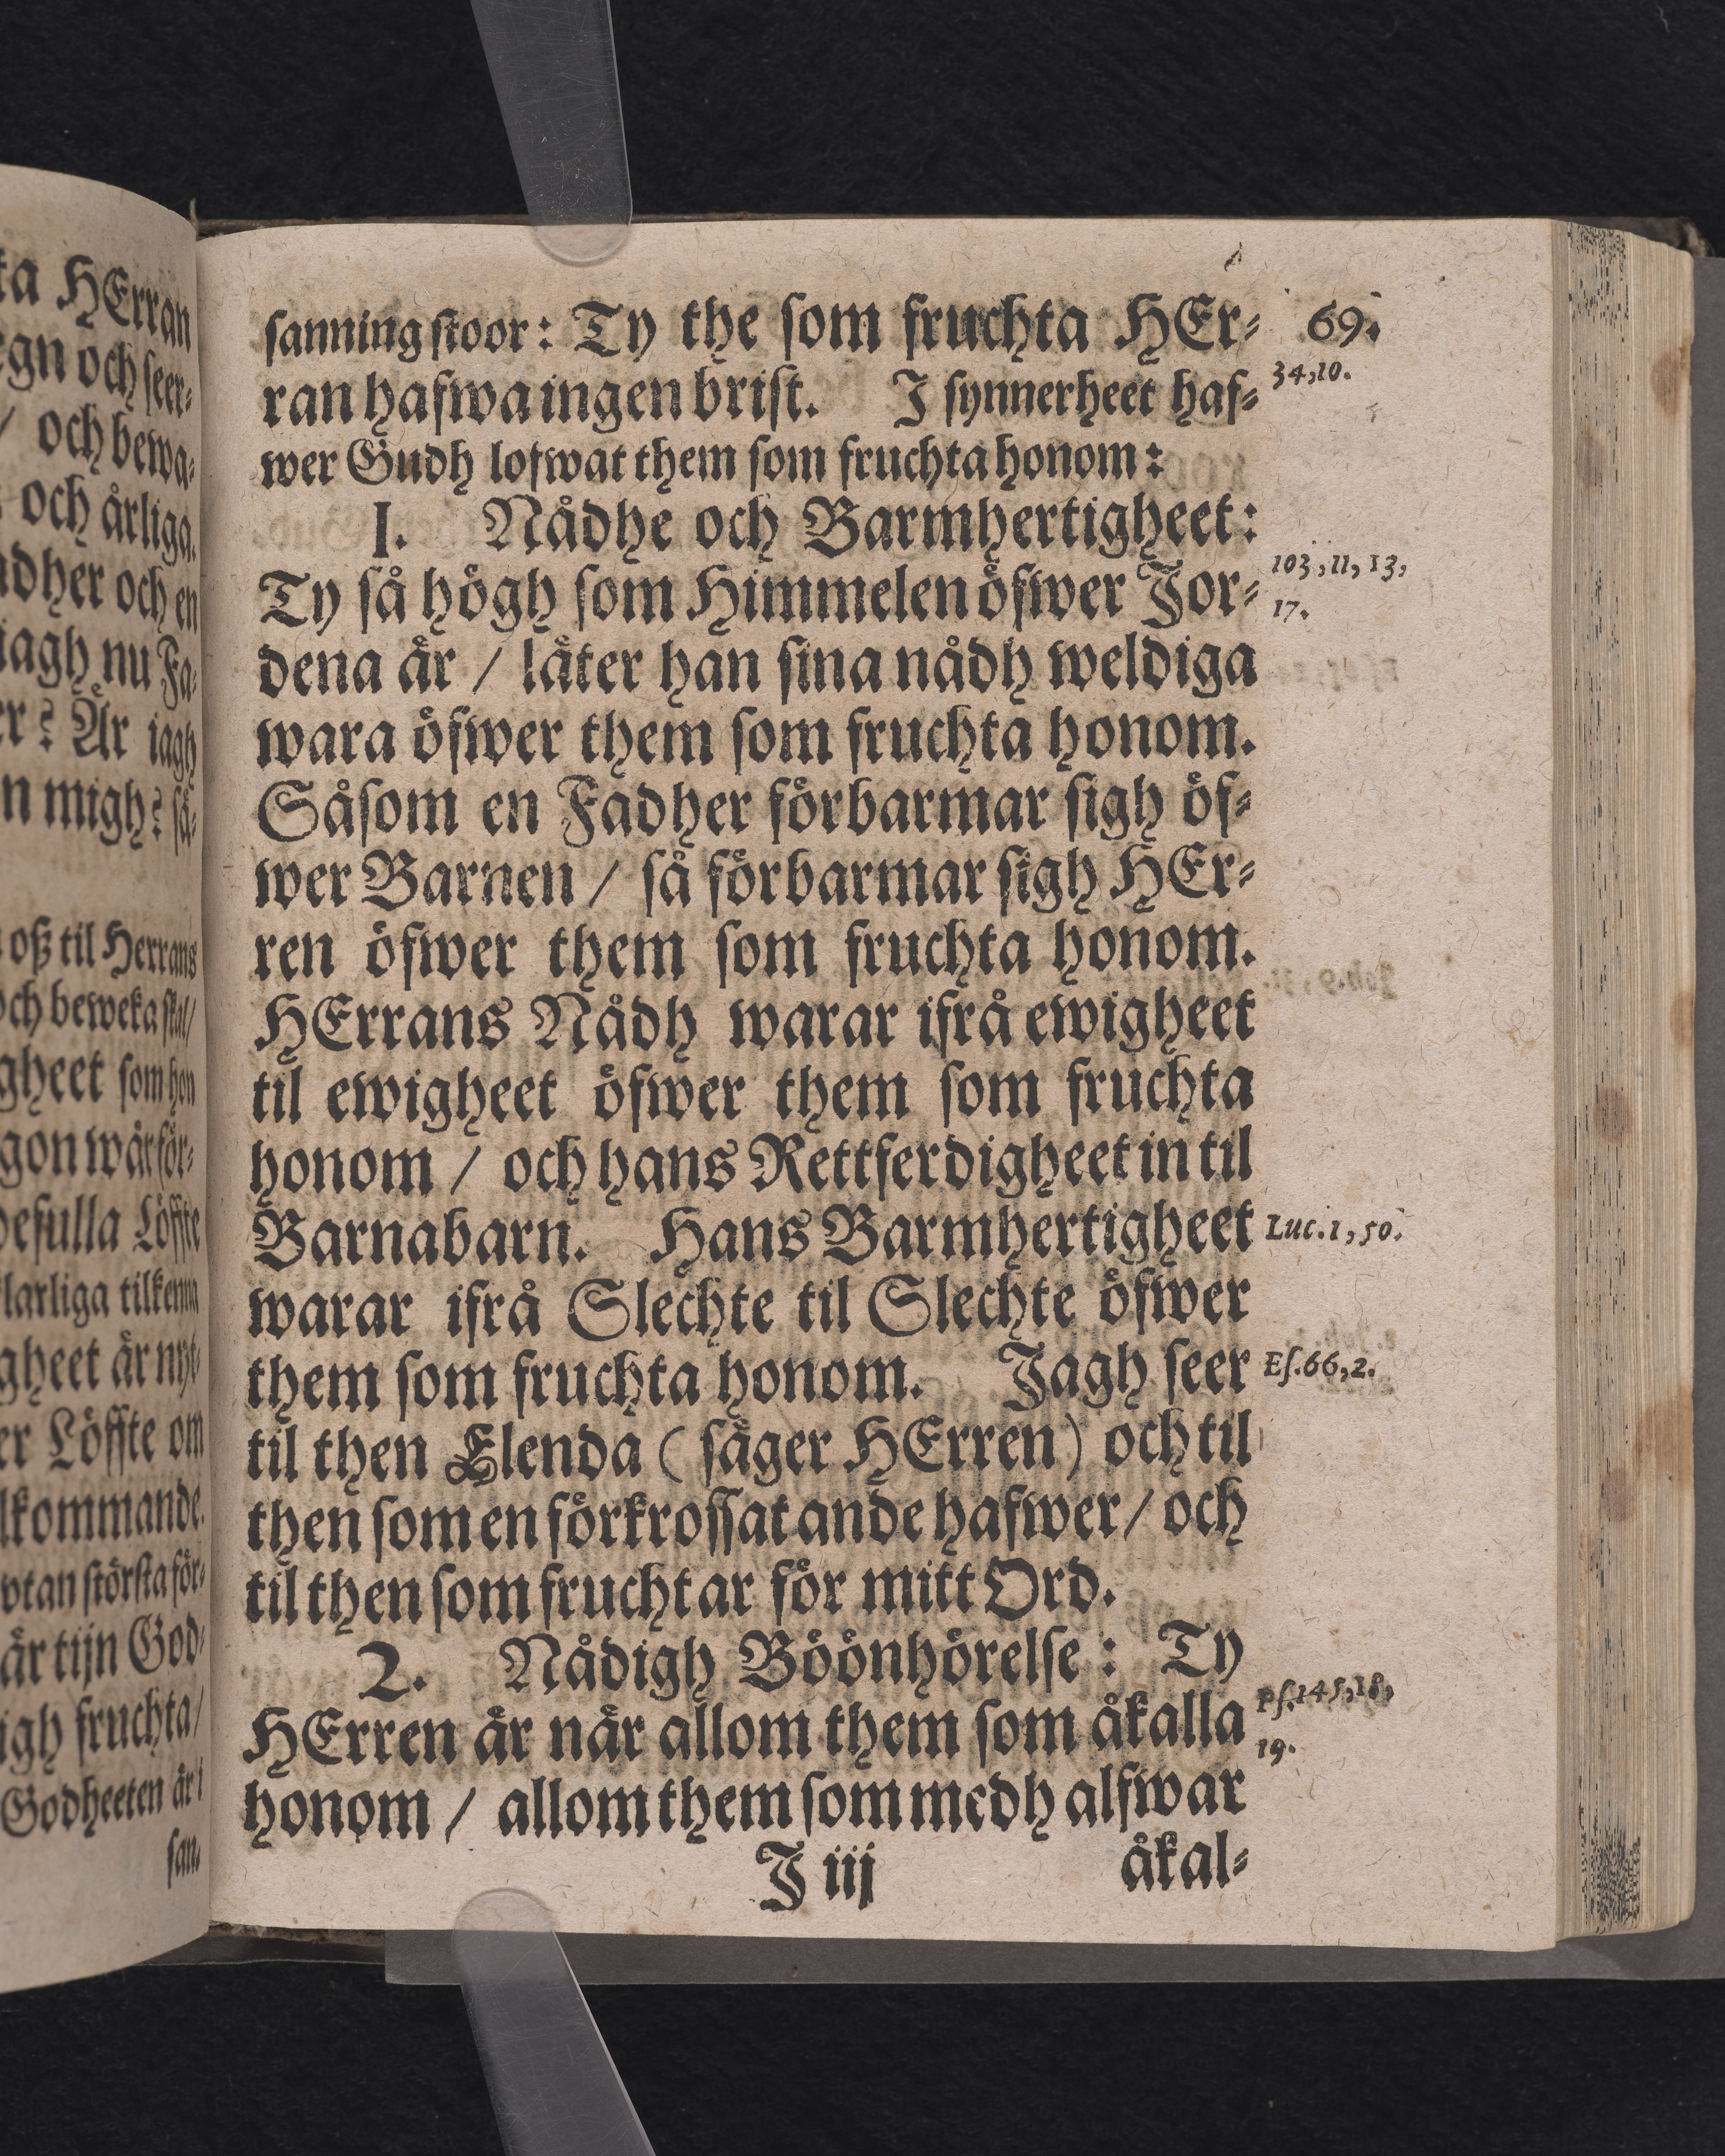 ta HErran
egn och seer-
/ och bewa-
och ärliga.
adher och en
iagh nu Fa-
er? Är iagh
n migh? så-
oß til Herrans
och beweka skal/
gheet som hon
gon wår för-
desulla Löffte
larliga tilkenna
gheet är nyt-
er Löffte om
lkommande.
vtan största för-
är tijn God-
igh fruchta/
Godheeten är i
san-
69.
sanning stoor: Ty the som fruchta HEr-
ran hafwa ingen brist. I synnerheet haf-
34,10.
wer Gudh lofwat them som fruchta honom:
I. Nådhe och Barmhertigheet:
Ty så högh som Himmelen öfwer Jor-
103,11,13,
17.
dena är / låter han sina nådh weldiga
wara öfwer them som fruchta honom.
Såsom en Fadher förbarmar sigh öf-
wer Barnen / så förbarmar sigh HEr-
ren öfwer them som fruchta honom.
HErrans Nådh warar ifrå ewigheet
til ewigheet öfwer them som fruchta
honom / och hans Rettferdigheet in til
Barnabarn. Hans Barmhertigheet
Luc.1,50.
warar ifrå Slechte til Slechte öfwer
them som fruchta honom. Jagh seer
Es.66,2.
til then Elenda ( säger HErren) och til
then som en förkrossat ande hafwer/ och
til then som fruchtar för mitt Ord.
2. Nådigh Böönhörelse: Ty
HErren är när allom them som åkalla
Ps.145,18,
19.
honom / allom them som medh alfwar
J iij
åkal-